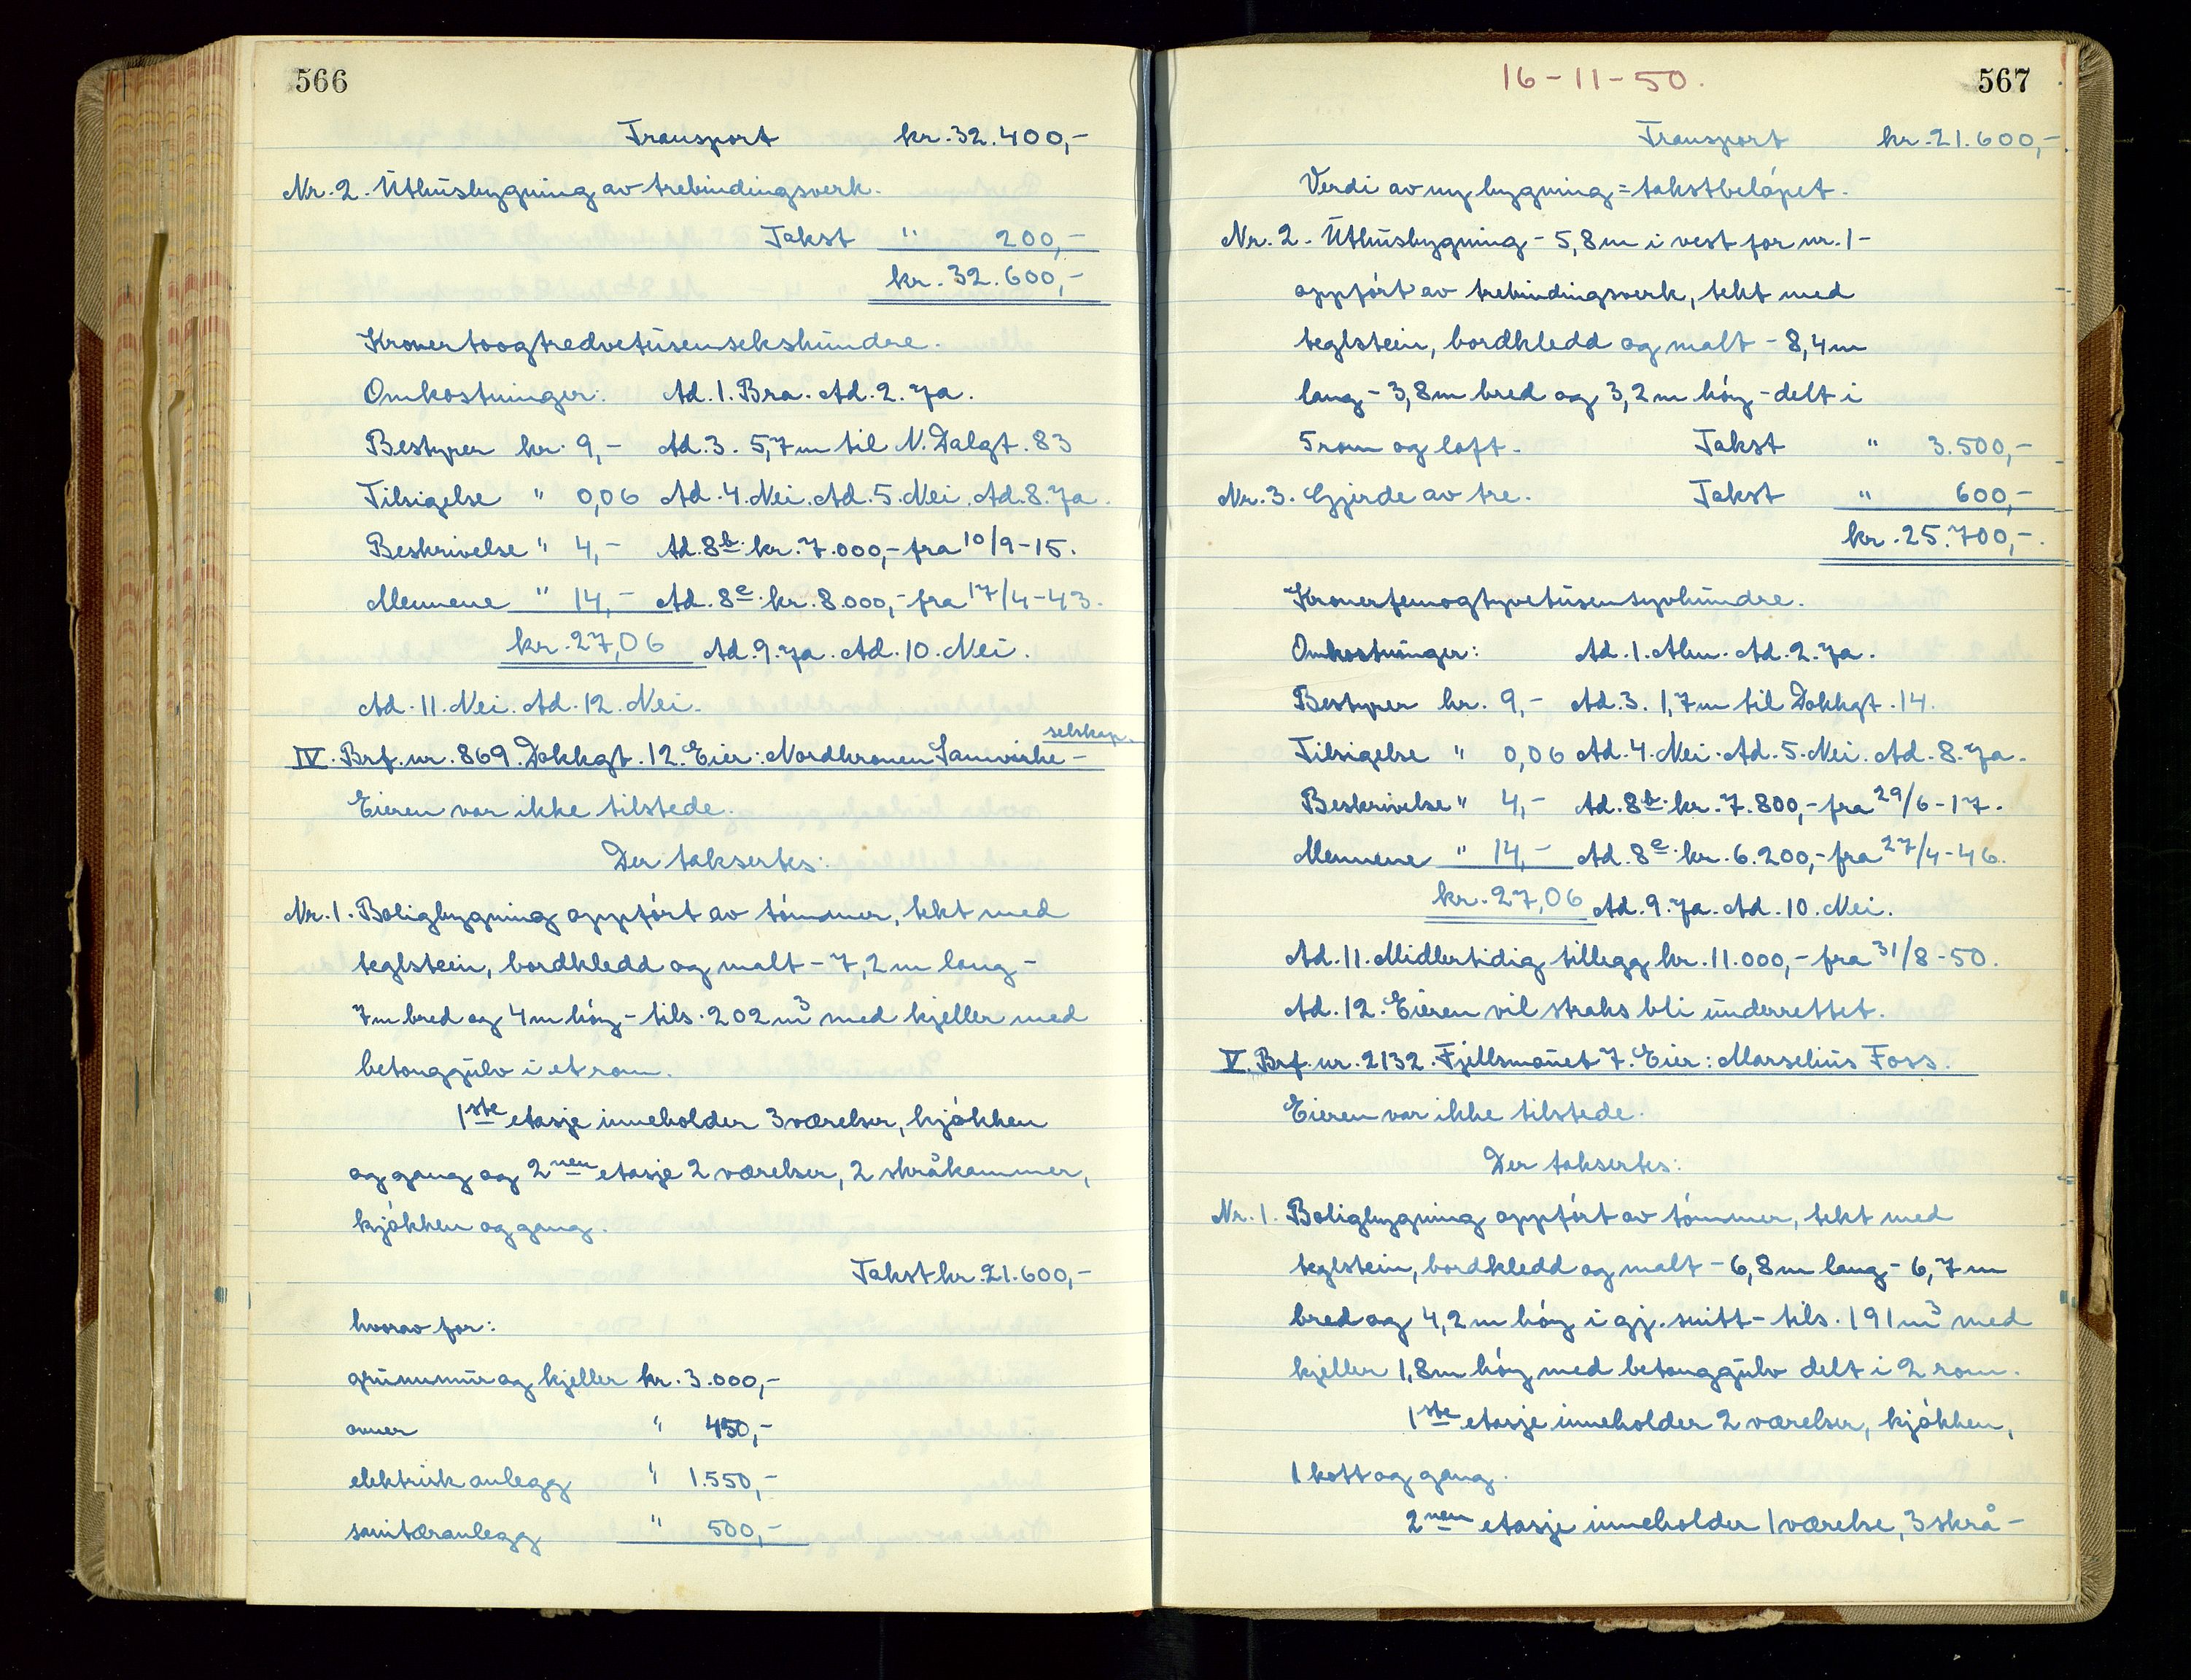 566
Transport kr. 32.400,-
Nr. 2. Uthusbygning av trebindingsverk.
Takst " 200,-
kr. 32.600,-
Kronertoogtredvetusensekshundre.
Omkostninger: Ad. 1. Bra. Ad. 2. Ja.
Bestyrer kr. 9,- Ad. 3. 5,7m til N. Dalgt. 83
Tilsigelse " 0,06 Ad. 4. Nei. Ad. 5. Nei. Ad. 8. Ja.
Beskrivelse " 4,- Ad. 8b. kr. 7.000,- fra 10/9-15.
Mennene " 14,- Ad. 8c. kr. 8.000,- fra 17/4-43.
kr. 27,06 Ad. 9. Ja. Ad. 10. Nei.
Ad. 11. Nei. Ad. 12. Nei.
selskap.
IV. Brf. nr. 869. Dokkgt. 12. Eier: Nordkronen Samvirke-
Eieren var ikke tilstede.
Der taksertes:
Nr. 1. Boligbygning oppført av tømmer, tekt med
teglstein, bordkledd og malt - 7,2m lang -
7m bred og 4m høy - tils. 202m³ med kjeller med
betonggulv i et rom.
1ste etasje inneholder 3 værelser, kjøkken
og gang og 2nen etasje 2 værelser, 2 skråkammer,
kjøkken og gang.
Takst kr. 21.600,-
hvorav for:
grunnmur og kjeller kr. 3.000,-
ovner " 450,-
elektrisk anlegg " 1.550,-
sanitæranlegg " 500,-
16-11-50.
567
Transport kr. 21.600,-
Verdi av ny bygning = takstbeløpet.
Nr. 2. Uthusbygning - 5,8m i vest for nr. 1 -
oppført av trebindingsverk, tekt med
teglstein, bordkledd og malt - 8,4m
lang - 3,8m bred og 3,2m høy - delt i
5 rom og loft. Takst " 3.500,-
Nr. 3. Gjerde av tre. Takst " 600,-
kr. 25.700,-.
Kronerfemogtyvetusensyvhundre.
Omkostninger: Ad. 1. Alm. Ad. 2. Ja.
Bestyrer kr. 9,- Ad. 3. 1,7m til Dokkgt. 14.
Tilsigelse " 0,06 Ad. 4. Nei. Ad. 5. Nei. Ad. 8. Ja.
Beskrivelse " 4,- Ad. 8b. kr. 7.800,- fra 29/6-17.
Mennene " 14,- Ad. 8c. kr. 6.200,- fra 27/4-46.
kr. 27,06 Ad. 9. Ja. Ad. 10. Nei.
Ad. 11. Midlertidig tillegg kr. 11.000,- fra 31/8-50.
Ad. 12. Eieren vil straks bli underrettet.
V. Brf. nr. 2132. Fjellsmauet 7. Eier: Marselius Foss.
Eieren var ikke tilstede.
Der taksertes:
Nr. 1. Boligbygning oppført av tømmer, tekt med
teglstein, bordkledd og malt - 6,8m lang - 6,7m
bred og 4,2m høy i gj. snitt - tils. 191m³ med
kjeller 1,8m høy med betonggulv delt i 2 rom.
1ste etasje inneholder 2 værelser, kjøkken,
1 kott og gang.
2nen etasje inneholder 1 værelse, 3 skrå-